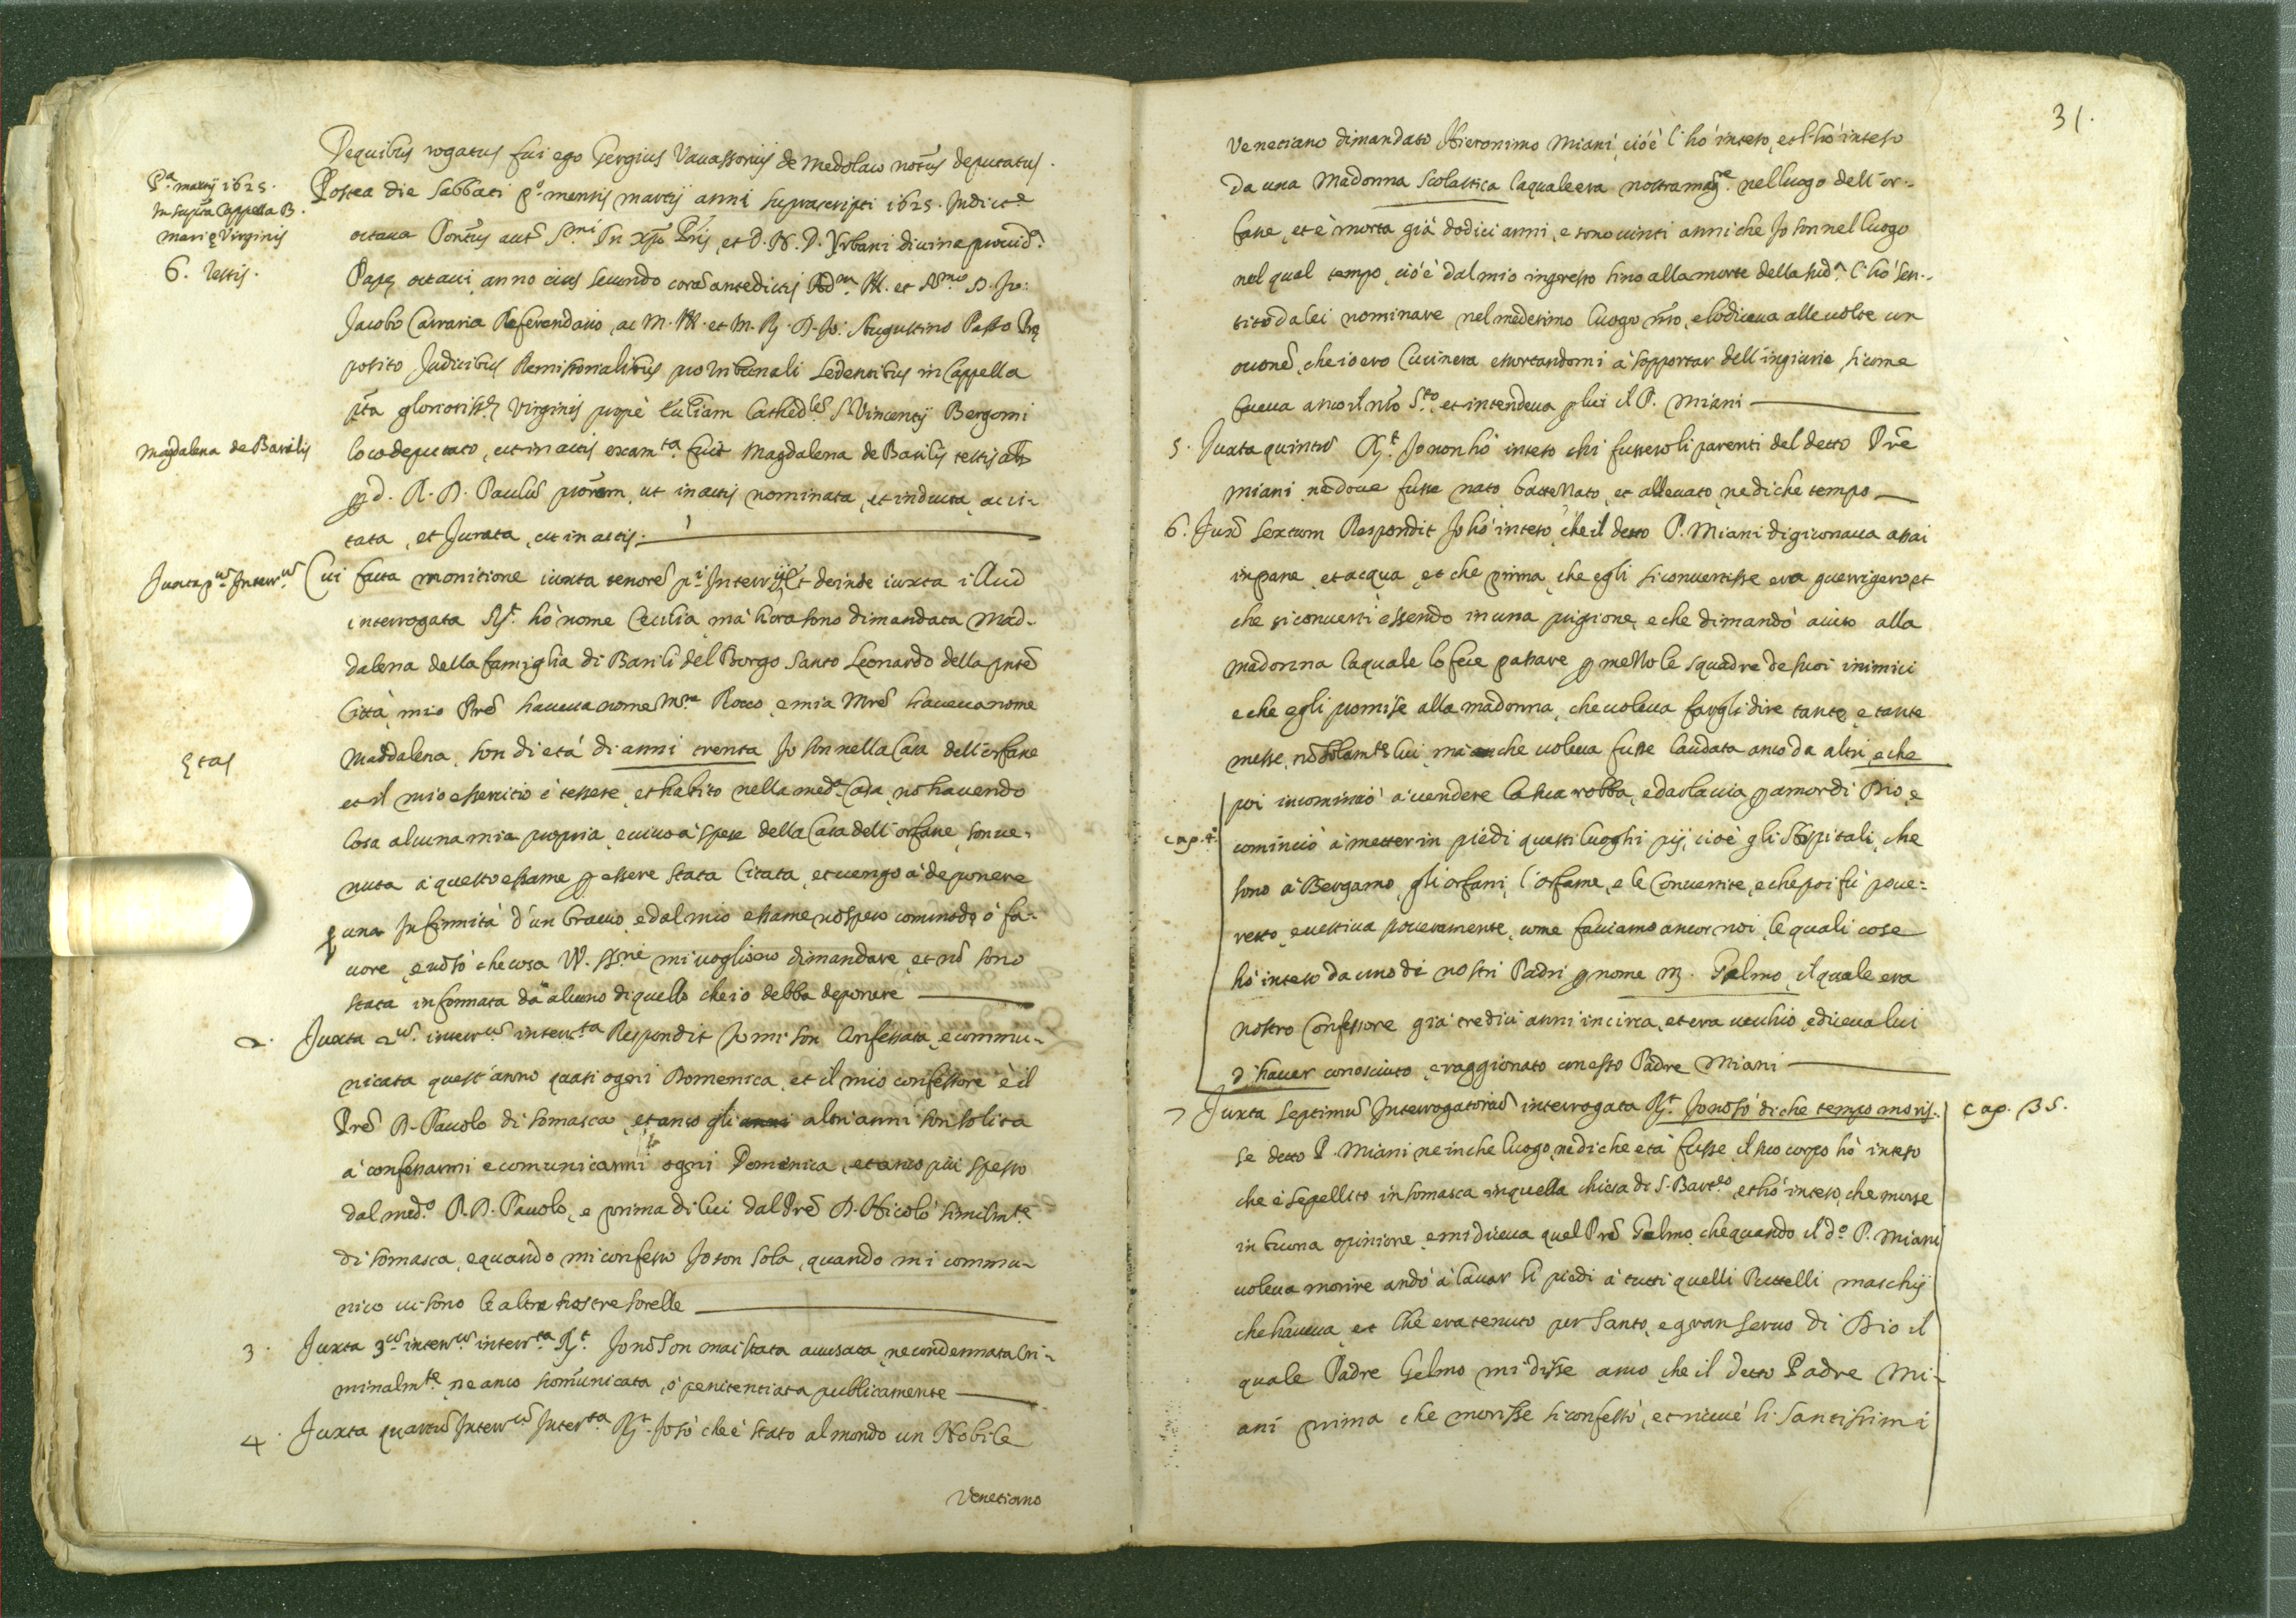 De quibus rogatus fui ego Gergius Vavassorius de Medolaco not.s deputatus.
P.a martij 1625.
In supra Cappella B.
Marię Virginis
6. Testis.
Postea die Sabbati p.o mensis martij anni suprascripti 1625. Indict.e
octava Pont.s aut. S.mi in Xpo Pris, et D. N. D. Vrbani divina provid.a
Papę octavi anno eius secundo corã antedictis Adm. Ill. et R.mo D. Jo:
Jacobo Carraria Referendario, ac M. Ill. et M. R. D. Jo: Augustino Passo Pre
posito Judicibus Remissorialibus pro tribunali sedentibus in Cappella
pta gloriosiss. Virginis propè Eccliam Cathedlẽ S. Vincentij Bergomi
Magdalena de Basilijs
loco deputato, ut in actis exam.ta fuit Magdalena de Basilijs testis als
p d. R. D. Paulũ prorem, ut in actis nominata, et inducta, ac ci-
tata, et Jurata, ut in actis.
Juxta p.m Interr.m
Cui facta monitione iuxta tenorẽ p.i Interrij Et deinde iuxta illud
interrogata R.t hò nome Cecilia, mà hora sono dimandata Mad-
dalena della famiglia di Basili del Borgo Santo Leonardo della pnte
Città, mio Prẽ haveva nome M.re Rocco, e mia Mrẽ haveva nome
Ętas
Maddalena, son di età di anni trenta Jo son nella Casa dell'orfane
et il mio essercitio è tessere, et habito nella med.a Casa, nõ havendo
cosa alcuna mia propria, e vivo à spese della Casa dell'orfane, son ve-
nuta à questo esame p essere stata Citata, et vengo à deponere
p una Infirmità d'un braccio, e dal mio esame nõ spero commodo ò fa-
vore, e nõ sò che cosa VV. SS.rie mi vogliono dimandare, et nõ sono
stata informata da alcuno di quello che io debba deponere
2. Juxta 2.m interr.m interr.ta Respondit Jo mi son Confessata, e commu-
nicata quest'anno quasi ogni Domenica, et il mio confessore è il
Prẽ D. Pavolo di Somasca, et anco gli anni altri anni son solita
à confessarmi e comunicarmi ogni Domenica, et anco più spesso
dal med.o P. D. Pavolo, e prima di lui dal Prẽ D. Nicolò similm.te
di Somasca, e quando mi confesso Jo son sola, quando mi commu-
nico vi sono le altre nostre sorelle
3. Juxta 3.m interr.m interr.ta R.t Jo nõ son mai stata accusata, ne condennata Cri-
minalm.te, ne anco scomunicata, ò penitentiata publicamente
4. Juxta quartũ Interr.m Inter.ta R.t Jo sò che è stato al mondo un Nobile
Venetiano
31.
Venetiano dimandato Hieronimo Miani, cioè l'hò inteso, et l'hò inteso
da una Madonna Scolastica la quale era nostra mag.e nel luogo dell'or-
fane, et è morta già dodici anni, e sono vinti anni che Jo son nel luogo
nel qual tempo, cioè dal mio ingresso sino alla morte della sud.a l'hò sen-
tito da lei nominare nel medesimo luogo nro, e lo diceva alle volte con
occonẽ, che io ero Cucinera essortandomi à sopportar dell'ingiurie, sicome
faceva anco il nro S.to, et intendeva p lui il P. Miani
5. Juxta quintũ R.t Jo non hò inteso chi fussero li parenti del detto Prẽ
Miani, ne dove fusse nato, battezzato, et allevato, ne di che tempo
6. Juxta sextum Respondit Jo hò inteso, che il detto P. Miani digiunava assai
in pane, et acqua, et che prima, che egli si convertisse era guerrigero, et
che si convertì essendo in una prigione, e che dimandò aiuto alla
Madonna la quale lo fece passare p mezzo le squadre de suoi inimici
e che egli promise alla madonna, che voleva fargli dire tante, e tante
messe, nõ solam.te lui, mà che voleva fusse laudata anco da altri, e che
poi incominciò à vendere la sua robba, e darla via p amor di Dio, e
cap. 4.
cominciò à metter in piedi questi luoghi pij, cioè gli Hospitali, che
sono à Bergamo, gli orfani, l'orfane, e le Convertite, e che poi fù pove-
retto, e vestiva poveramente, come facciamo ancor noi, le quali cose
hò inteso da uno di nostri Padri p nome M. Gelmo, il quale era
nostro Confessore già tredici anni in circa, et era vecchio, e diceva lui
d'haver conosciuto, e raggionato con esso Padre Miani
7 Juxta septimũ Interrogatoriũ interrogata R.t Jo nõ sò di che tempo moris-
cap. 35.
se detto P. Miani ne in che luogo, ne di che età fusse, il suo corpo hò inteso
che è sepellito in Somasca in quella chiesa di S. Bart.eo, et hò inteso, che morse
in buona opinione, e mi diceva quel Prẽ Gelmo, che quando il d.o P. Miani
voleva morire andò à lavar li piedi à tutti quelli Puttelli maschij
che haveva, et che era tenuto per Santo, e gran servo di Dio il
quale Padre Gelmo mi disse anco, che il detto Padre Mi-
ani prima che morisse si confessò, et riceve li santissimi